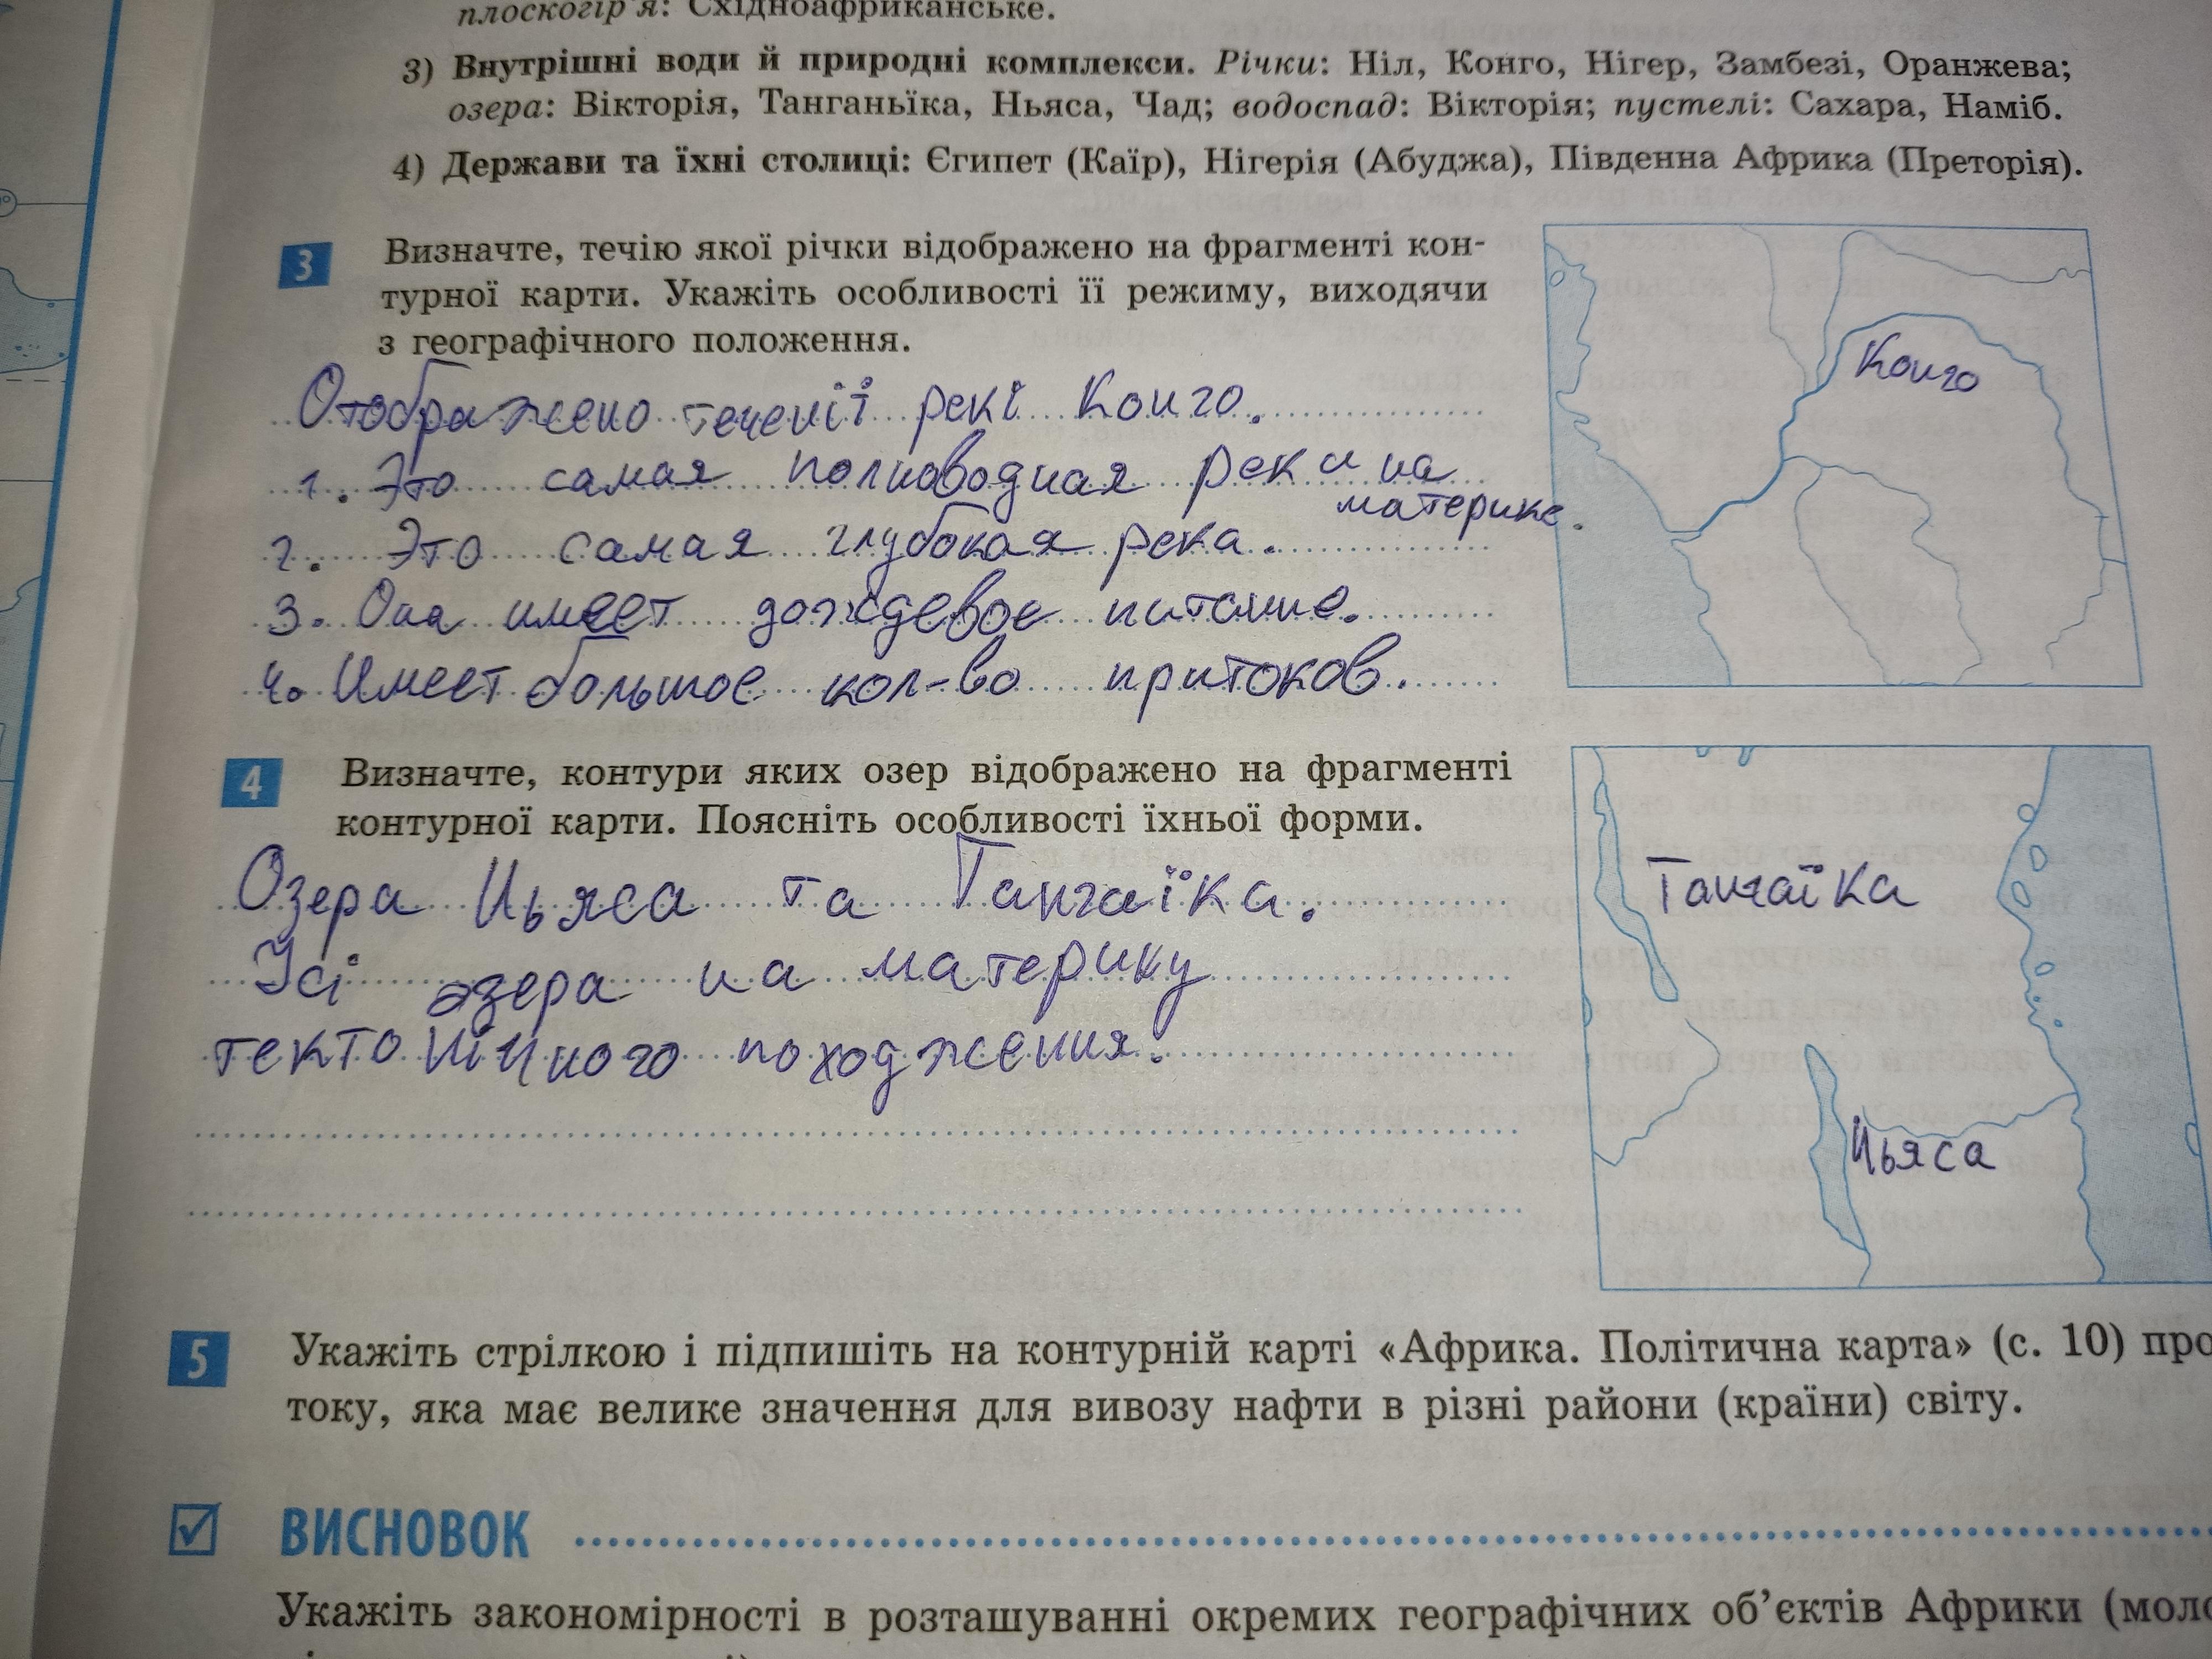 плоскогір'я: Східноафриканське.
3) Внутрішні води й природні комплекси. Річки: Ніл, Конго, Нігер, Замбезі, Оранжева;
озера: Вікторія, Танганьїка, Ньяса, Чад; водоспад: Вікторія; пустелі: Сахара, Наміб.
4) Держави та їхні столиці: Єгипет (Каїр), Нігерія (Абуджа), Південна Африка (Преторія).
3 Визначте, течію якої річки відображено на фрагменті кон-
турної карти. Укажіть особливості її режиму, виходячи
з географічного положення.
Отображено теченії рекі Конго.
1. Это самая полноводная река на
материке.
2. Это самая глубокая река.
3. Она имеет дождевое питание.
4. Имеет большое кол-во притоков.
Конго
4 Визначте, контури яких озер відображено на фрагменті
контурної карти. Поясніть особливості їхньої форми.
Озера Ньяса та Тангаїка.
Усі озера на материку
тектонічного походження.
Тангаїка
Ньяса
5 Укажіть стрілкою і підпишіть на контурній карті «Африка. Політична карта» (с. 10) про
току, яка має велике значення для вивозу нафти в різні райони (країни) світу.
ВИСНОВОК
Укажіть закономірності в розташуванні окремих географічних об'єктів Африки (моло